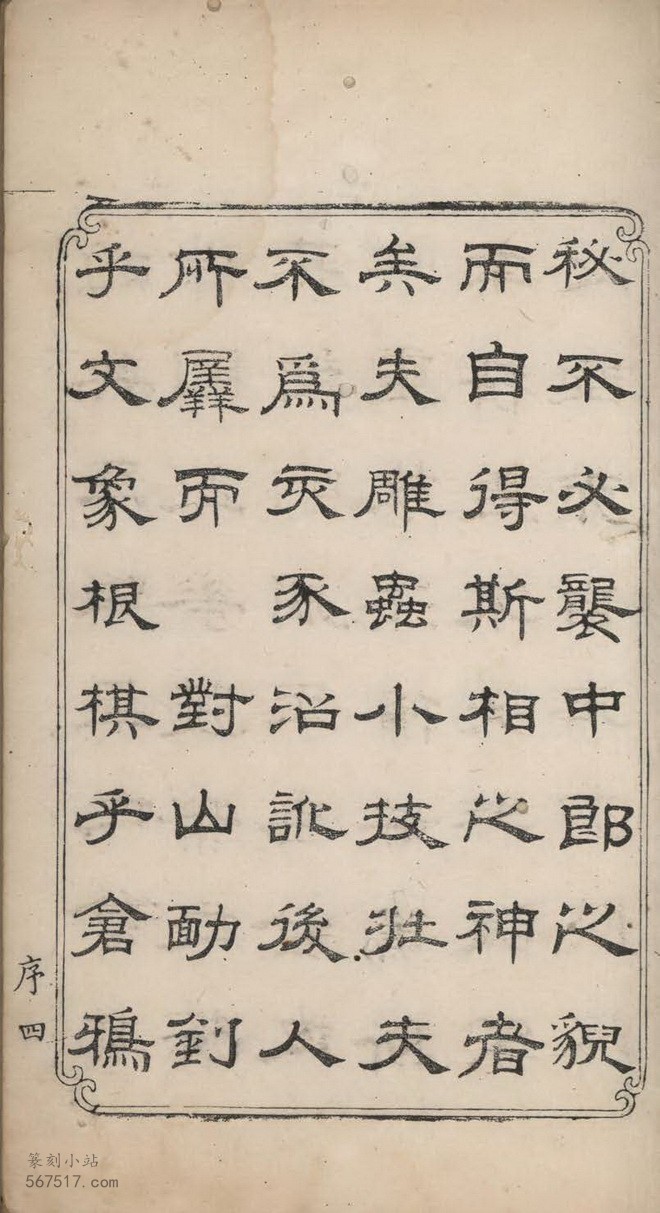 秘不必襲中郎之貌
而自得斯相之神者
矣夫雕蟲小技壯夫
不爲亥豕沿訛後人
所羼而 對山勔釗
乎文象根棋乎倉鴉
序四
篆刻小站
567517.com